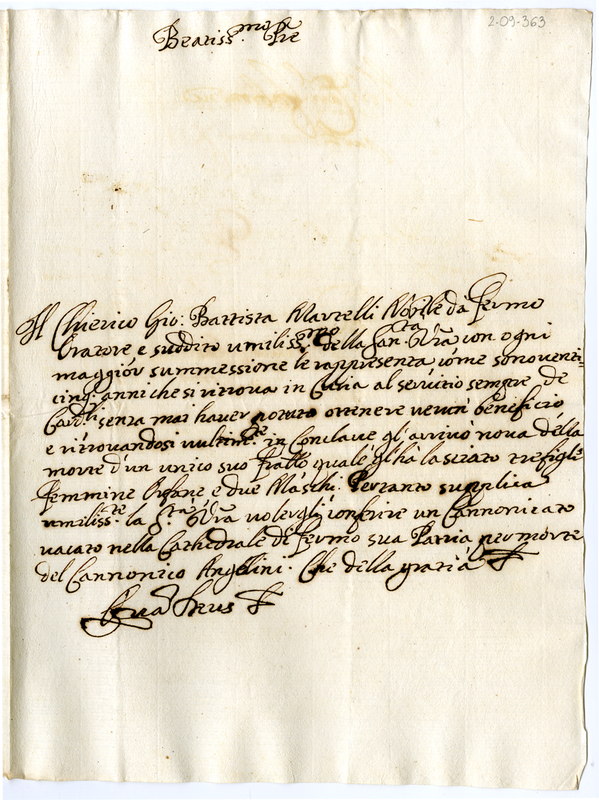 2-09-363
Beatiss.mo Pre
Il Chierico Gio: Battista Martelli Nobile da Fermo
Oratore e suddito umiliss.mo della San.ta Vra con ogni
maggior summessione le rappresenta come sono venti=
cinq: anni che si ritrova in Curia al servitio sempre de
Card.li senza mai haver potuto ottenere verun beneficio
e ritrovandosi ultim.te in Conclave gl'arrivò nova della
morte d'un unico suo frallo quale gl'hà lasciato tre figlie
femmine Orfane e due Maschi. Pertanto supplica
umiliss.te la S.tà Vra volergli conferire un Cannonicato
vacato nella Cathedrale di Fermo sua Patria per morte
del Cannonico Angelini. Che della gratia
Qua Deus